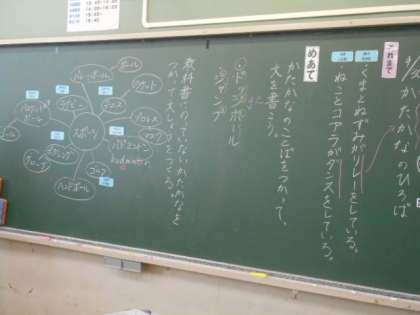 かたかなのひろば
これまで
・くまとねずみがリレーをしている。
・ねことコアラがダンスをしている。
めあて
かたかなのことばをつかって、
文を書こう。
・ドッジボール
・ジャンプ
教科書にのっていないかたかなを
つかって文しょうをつくる
スポーツ
ボール
バレーボール
ラケット
ラグビー
テニス
バスケットボール
プロレス
バドミントン
badminton
ゴルフ
ハンドボール
グローブ